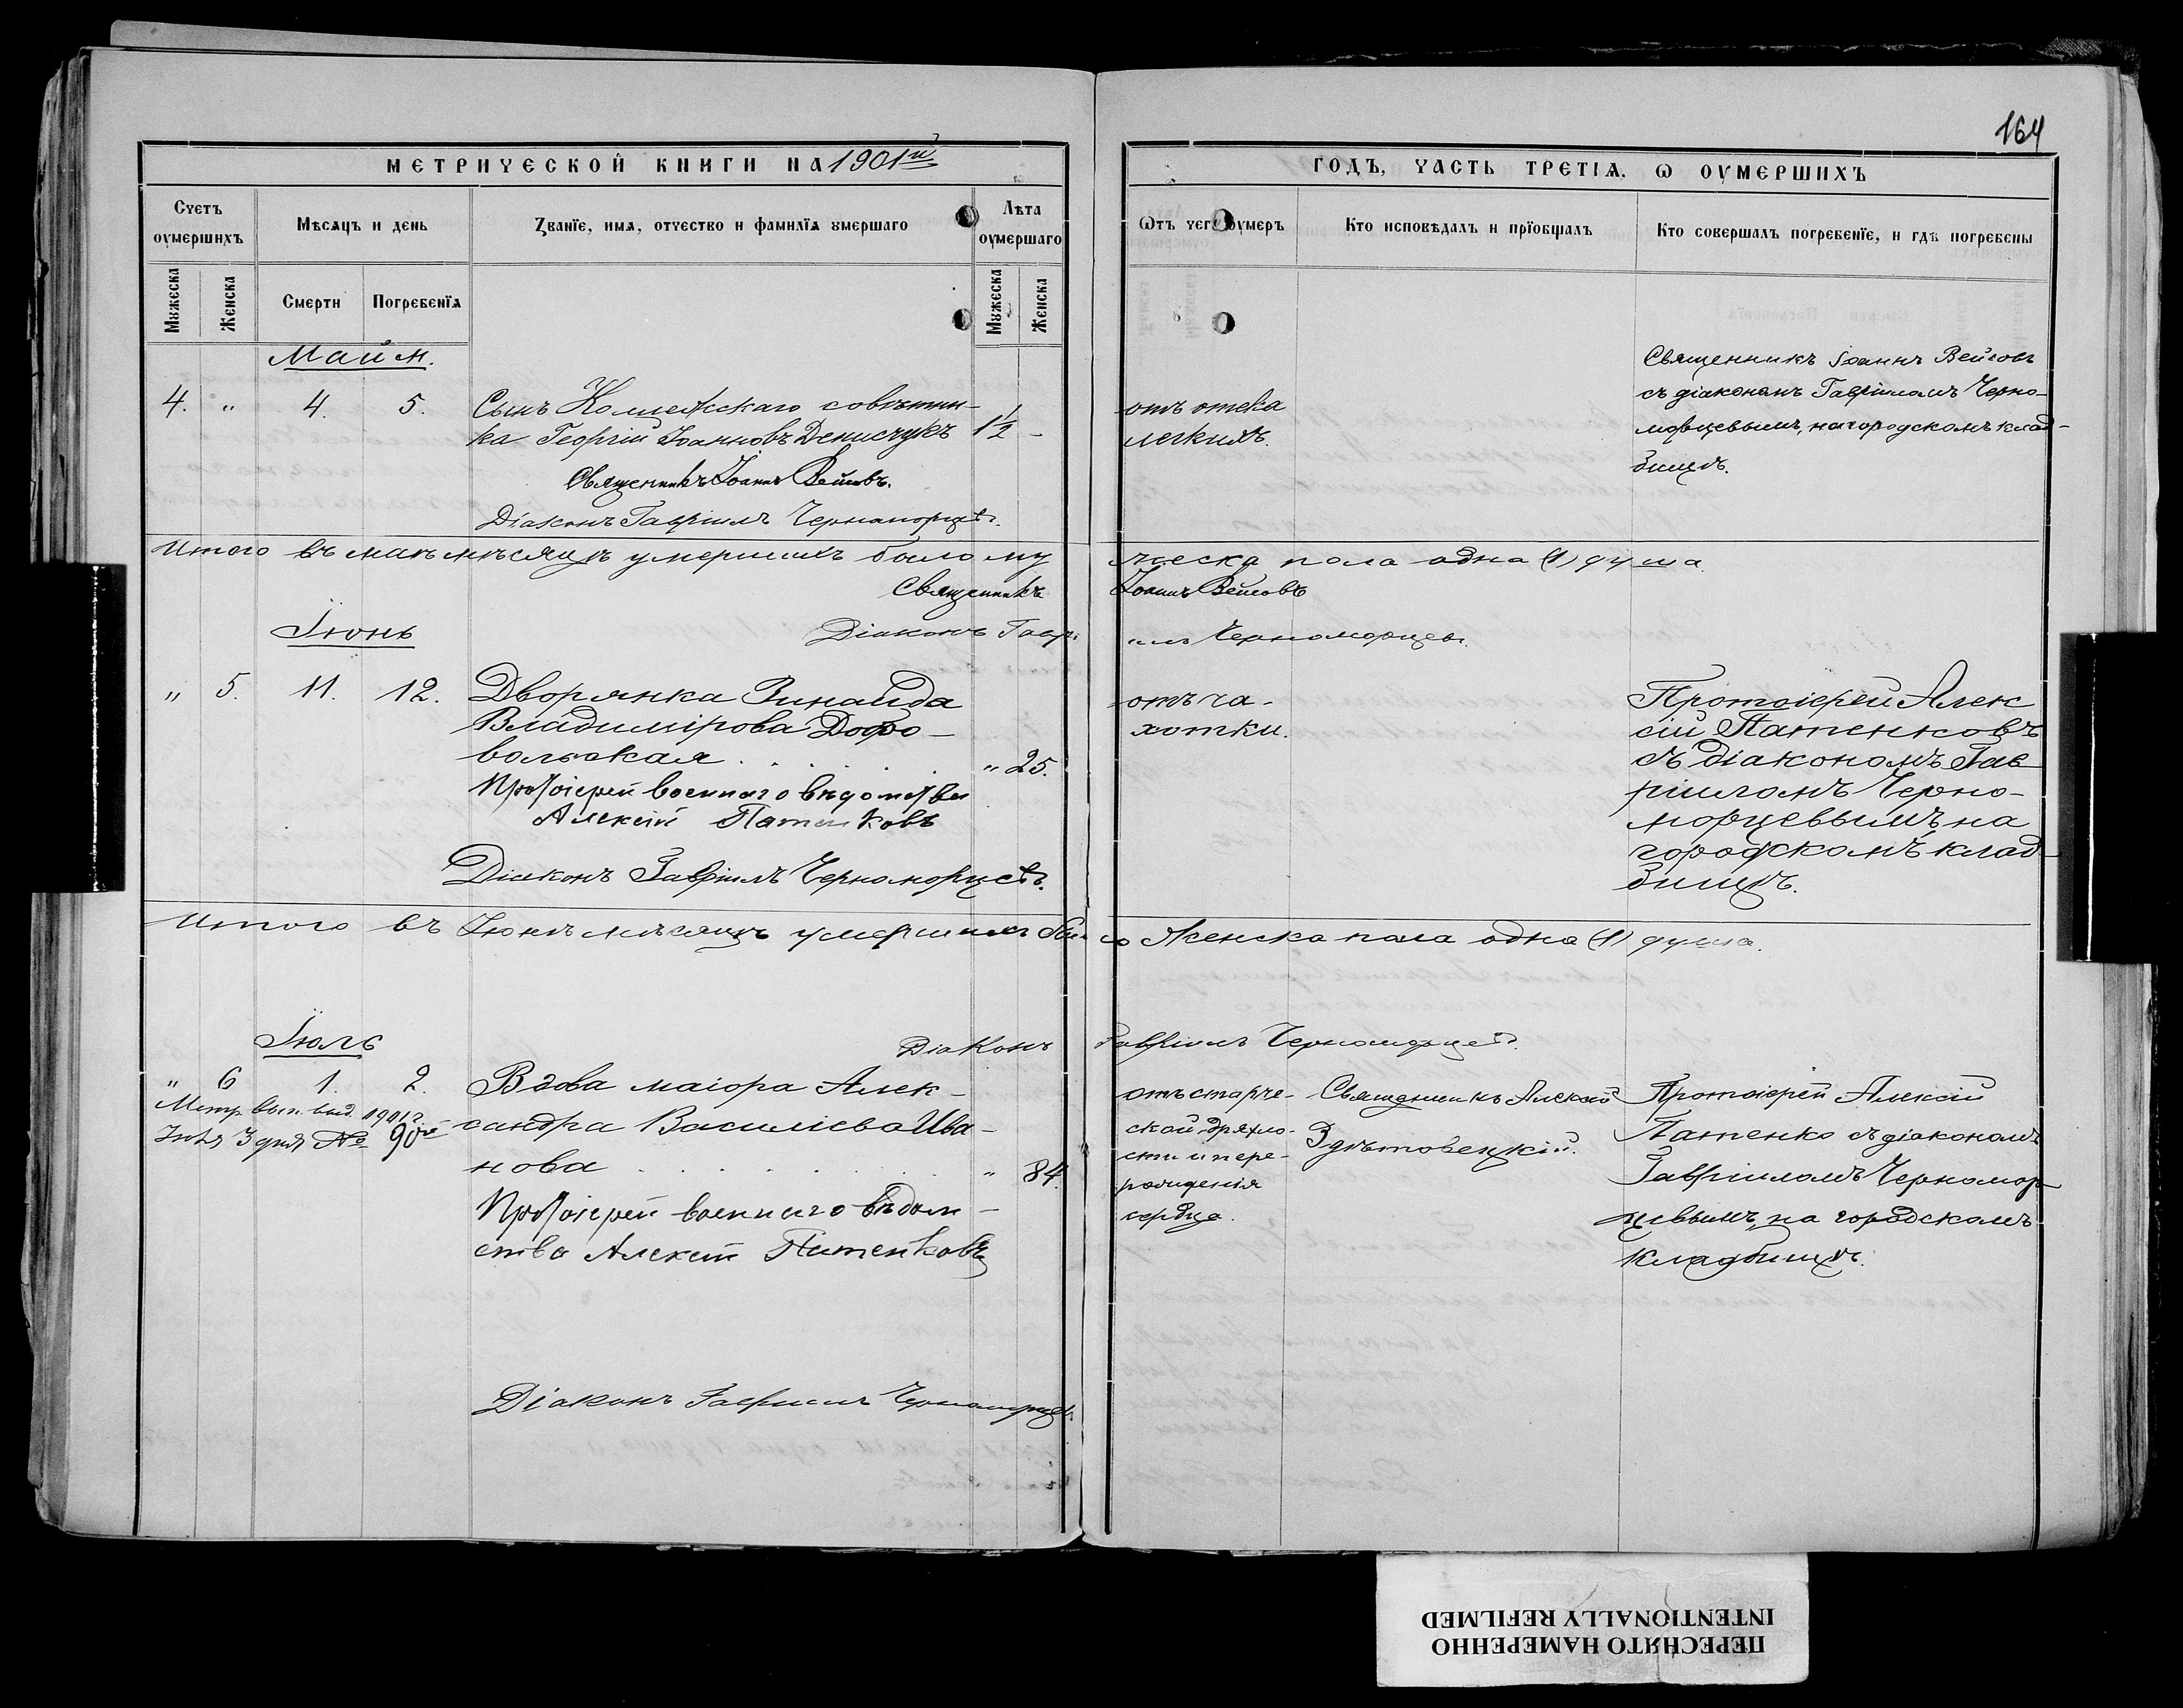 164
МЕТРИЧЕСКОЙ КНИГИ НА 1901й
ГОДЪ, ЧАСТЬ ТРЕТІѦ, Ѡ ОУМЕРШИХЪ
Счетъ оумершихъ
Мѣсѧцъ и день
Ꙁванїе, имѧ, отчество и фамилїѧ ꙋмершаго
Лѣта оумершаго
Ѿтъ чегѡ оумеръ
Кто исповѣдалъ и прїобщалъ
Кто совершалъ погребенїе, и гдѣ погребены
Мꙋжеска
Женска
Смерти
Погребенїѧ
Мꙋжеска
Женска
Май м.
4. " 4. 5.
Сынъ Коллежскаго совѣтни-
ка Георгій Іоанновъ Денисчукъ 1½ -
Священникъ Іоаннъ Вейсовъ.
Діаконъ Гавріилъ Черноморцевъ.
отъ отека
легкихъ.
Священникъ Іоаннъ Вейсовъ
съ діакономъ Гавріиломъ Черно-
морцевымъ, на городскомъ клад-
бищѣ.
Итого въ маѣ мѣсяцѣ умершихъ было му
жеска пола одна (1) душа.
Священникъ Іоаннъ Вейсовъ
Діаконъ Гаврі
илъ Черноморцевъ.
Іюнь
" 5. 11. 12.
Дворянка Зинаида
Владимірова Добро-
вольская . . . . . . " 25.
Протоіерей военнаго вѣдомства
Алексій Патенковъ
Діаконъ Гавріилъ Черноморцевъ.
отъ ча-
хотки.
Протоіерей Алек
сій Патенковъ
съ діакономъ Гав
ріиломъ Черно-
морцевымъ на
городскомъ клад-
бищѣ.
Итого въ Іюнѣ мѣсяцѣ умершихъ бы
ло женска пола одна (1) душа.
Діаконъ Гавріилъ Черноморцевъ.
Іюль
" 6 1. 2.
Метр. вып. выд. 1901 г.
Іюля 3 дня № 90й
Вдова маіора Алек-
сандра Василіева Ива-
нова . . . . . . . " 84.
Протоіерей военнаго вѣдом-
ства Алексій Патенковъ
Діаконъ Гавріилъ Черноморцевъ.
отъ старче-
ской дряхло-
сти и пере-
рожденія
сердца.
Священникъ Алексій
Протоіерей Алексій
Патенко съ діакономъ
Гавріиломъ Черномор-
цевымъ, на городскомъ
кладбищѣ.
ПЕРЕСНЯТО НАМЕРЕННО
INTENTIONALLY REFILMED